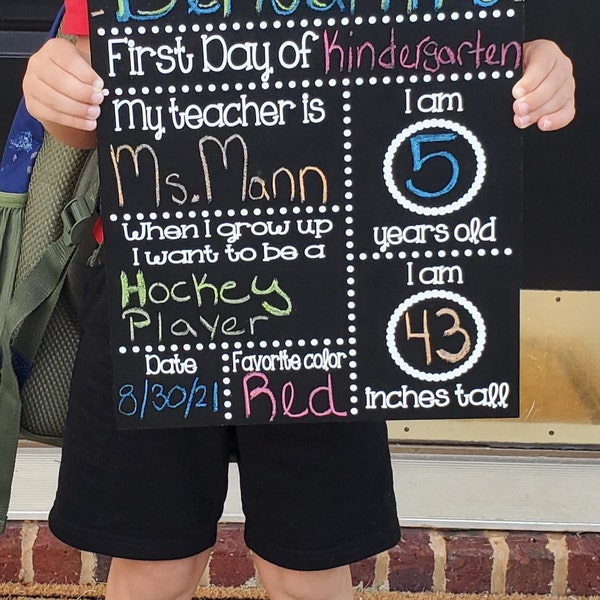 First Day of Kindergarten
My teacher is
Ms. Mann
I am
5
years old
When I grow up
I want to be a
Hockey
Player
I am
43
inches tall
Date
8/30/21
Favorite color
Red